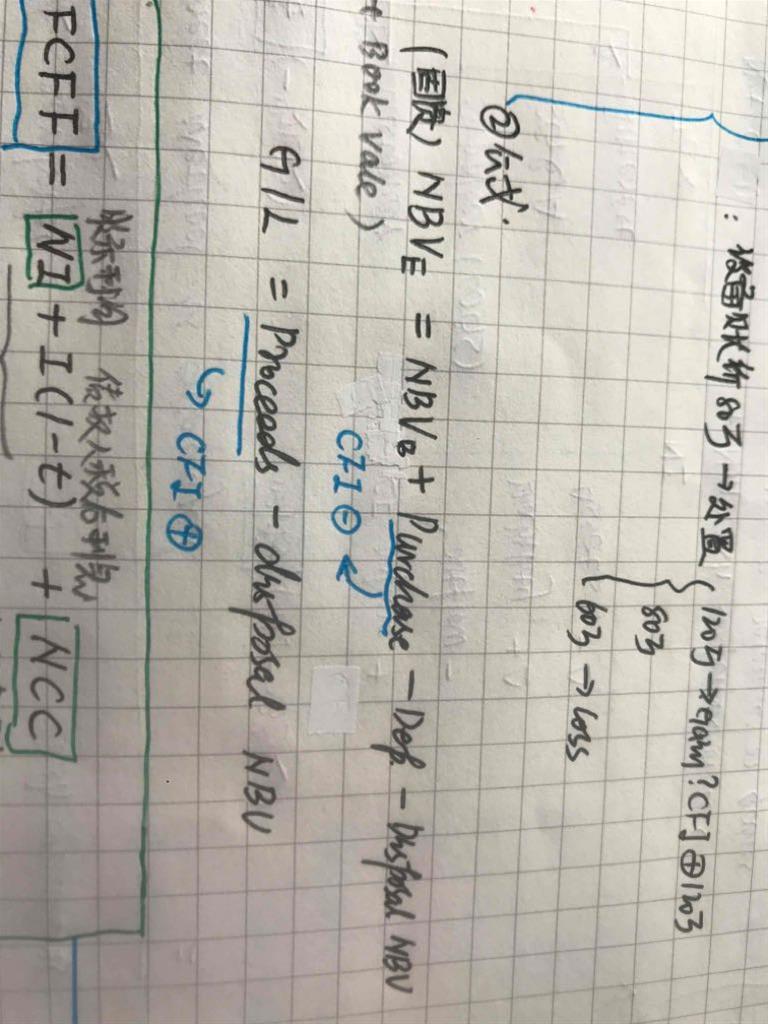 : 设备账面价 80万 → 处置 { 120万 → gain? CFI ⊕ 120万
80万
60万 → loss
② 公式.
(固资) NBV_E = NBV_B + Purchase - Dep - Disposal NBV
t Book Vale)
CFI ⊖
G/L = Proceeds - disposal NBV
↳ CFI ⊕
债权人税后利息
FCFF = NI + I(1-t) + NCC